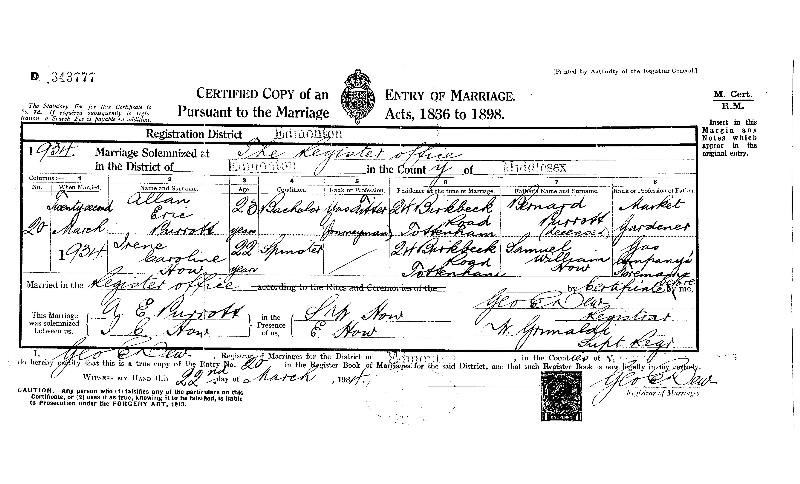 D 343777
[Printed by Authority of the Registrar General.]
CERTIFIED COPY of an ENTRY OF MARRIAGE.
Pursuant to the Marriage Acts, 1836 to 1898.
M. Cert.
R.M.
The Statutory Fee for this Certificate is
Insert in this
Margin any
Notes which
appear in the
original entry.
Registration District Edmonton
1934. Marriage Solemnized at The Register office
in the District of Edmonton in the County of Middlesex
Columns:— 1 2 3 4 5 6 7 8
No. When Married. Name and Surname. Age Condition. Rank or Profession. Residence at the time of Marriage. Father's Name and Surname. Rank or Profession of Father.
20 Twenty second March 1934
Allan Eric Purrott 23 years Bachelor Gas Fitter (Journeyman) 24 Birkbeck Road Tottenham Bernard Purrott (deceased) Market Gardener
Irene Caroline How 22 years Spinster 24 Birkbeck Road Tottenham Samuel William How Gas Company's Foreman
Married in the Register office according to the Rites and Ceremonies of the by Certificate before me,
This Marriage was solemnized between us, A E Purrott I C How in the Presence of us, S W How E How
Geo E Dew Registrar
W. Grimaldi Supt Regr
I, Geo E Dew, Registrar of Marriages for the District of Edmonton, in the County of
do hereby certify that this is a true copy of the Entry No. 20 in the Register Book of Marriages for the said District, and that such Register Book is now legally in my custody.
WITNESS MY HAND this 22nd day of March, 1934. Geo E Dew
Registrar of Marriages
CAUTION. Any person who (1) falsifies any of the particulars on this
Certificate, or (2) uses it as true, knowing it to be falsified, is liable
to Prosecution under the FORGERY ACT, 1913.